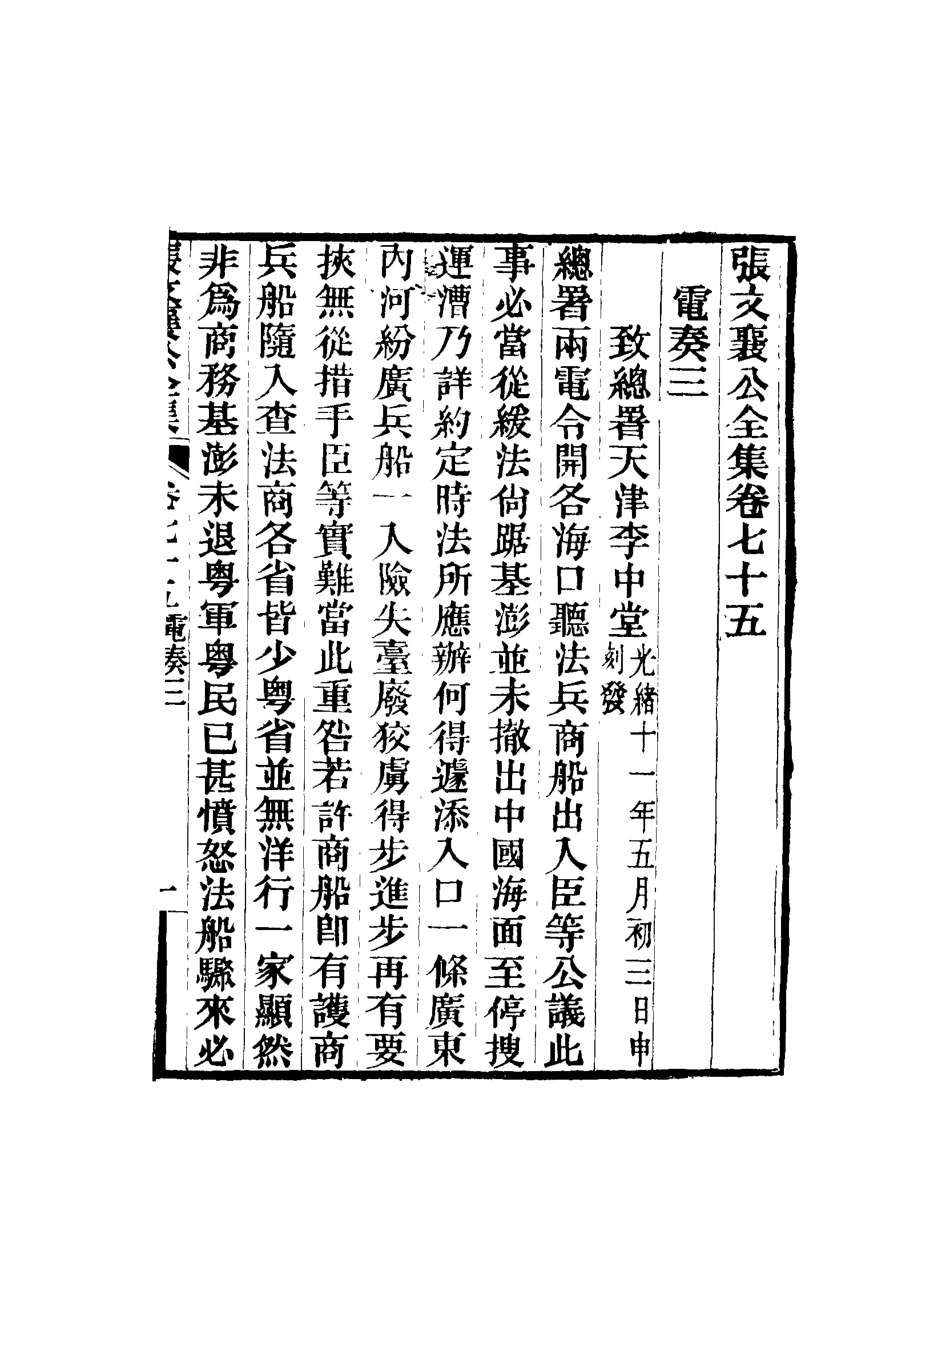 張文襄公全集卷七十五
電奏三
致總署天津李中堂光緒十一年五月初三日申刻發
總署兩電令開各海口聽法兵商船出入臣等公議此
事必當從緩法尙踞基澎並未撤出中國海面至停搜
運漕乃詳約定時法所應辦何得遽添入口一條廣東
內河紛廣兵船一入險失臺廢狡虜得步進步再有要
挾無從措手臣等實難當此重咎若許商船卽有護商
兵船隨入查法商各省皆少粵省並無洋行一家顯然
非爲商務基澎未退粵軍粵民已甚憤怒法船驟來必
張文襄公全集 卷七十五電奏三 一